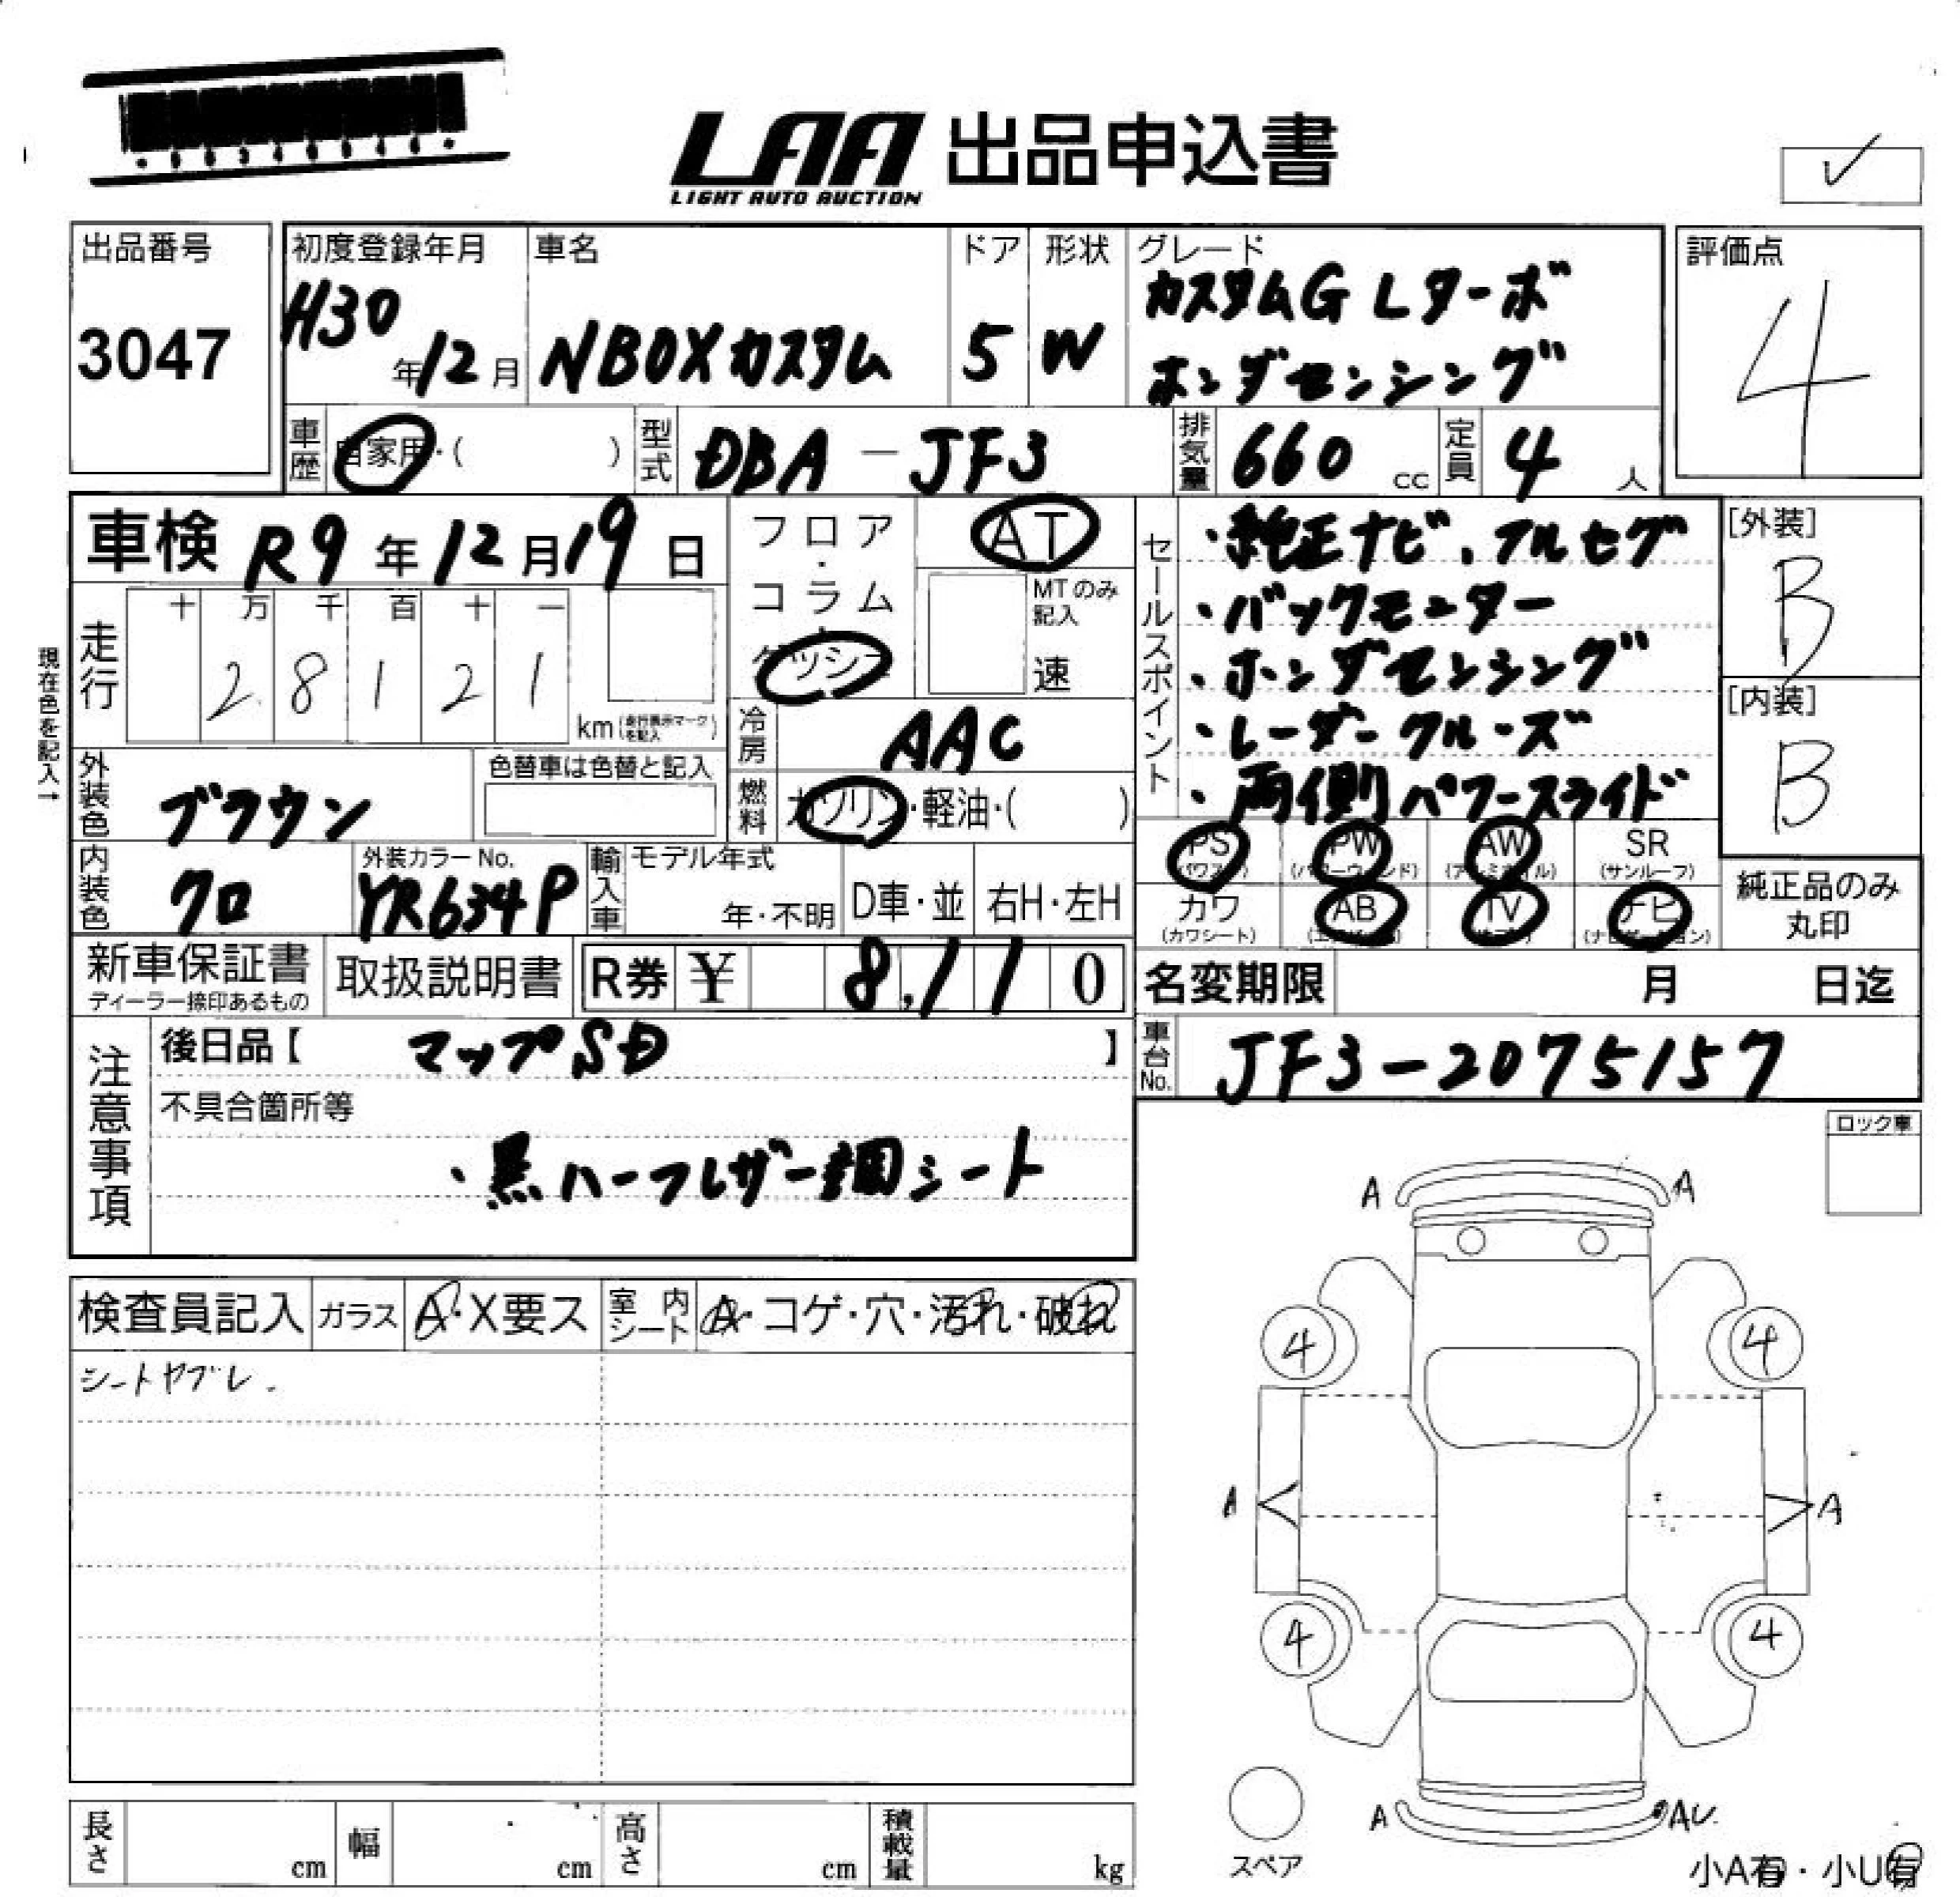 LAA 出品申込書
LIGHT AUTO AUCTION
✓
出品番号
3047
初度登録年月
H30年12月
車名
NBOXカスタム
ドア
5
形状
W
グレード
カスタムG Lターボ
ホンダセンシング
評価点
4
車歴
自家用・( )
型式
DBA-JF3
排気量
660 cc
定員
4 人
車検 R9年12月19日
フロア・コラム・ダッシュ
AT
MTのみ記入
速
現在色を記入→
走行
十 万 千 百 十 一
2 8 1 2 1
km(走行表示マークを記入)
冷房
AAC
外装色
ブラウン
色替車は色替と記入
燃料
ガソリン・軽油・( )
内装色
クロ
外装カラーNo.
YR634P
輸入車
モデル年式
年・不明
D車・並
右H・左H
セールスポイント
・純正ナビ、フルセグ
・バックモニター
・ホンダセンシング
・レーダークルーズ
・両側パワースライド
[外装]
B
[内装]
B
PS(パワステ)
PW(パワーウィンド)
AW(アルミホイル)
SR(サンルーフ)
カワ(カワシート)
AB(エアバッグ)
TV(テレビ)
ナビ(ナビゲーション)
純正品のみ
丸印
新車保証書
ディーラー捺印あるもの
取扱説明書
R券 ¥ 8,110
名変期限 月 日迄
注意事項
後日品【 マップSD 】
不具合箇所等
・黒ハーフレザー調シート
車台No.
JF3-2075157
ロック車
検査員記入
ガラス
A・X要ス
室内シート
A・コゲ・穴・汚れ・破れ
シートヤブレ.
A A
4 4
A A
4 4
A AU
スペア
小A有・小U有
長さ cm
幅 cm
高さ cm
積載量 kg